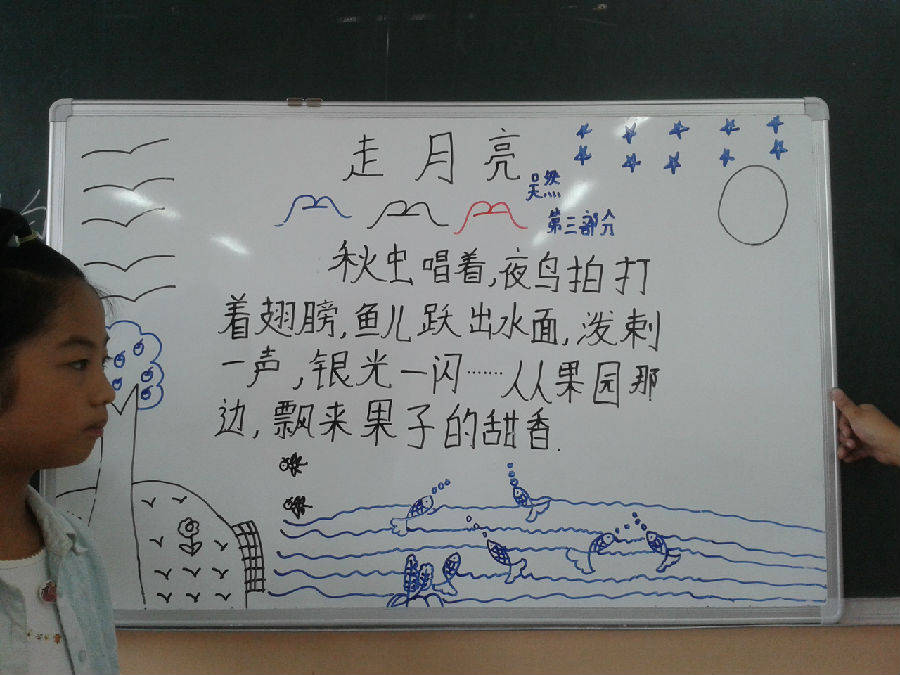 走月亮
吴然
第三部分
秋虫唱着,夜鸟拍打
着翅膀,鱼儿跃出水面,泼剌
一声,银光一闪……从果园那
边,飘来果子的甜香.